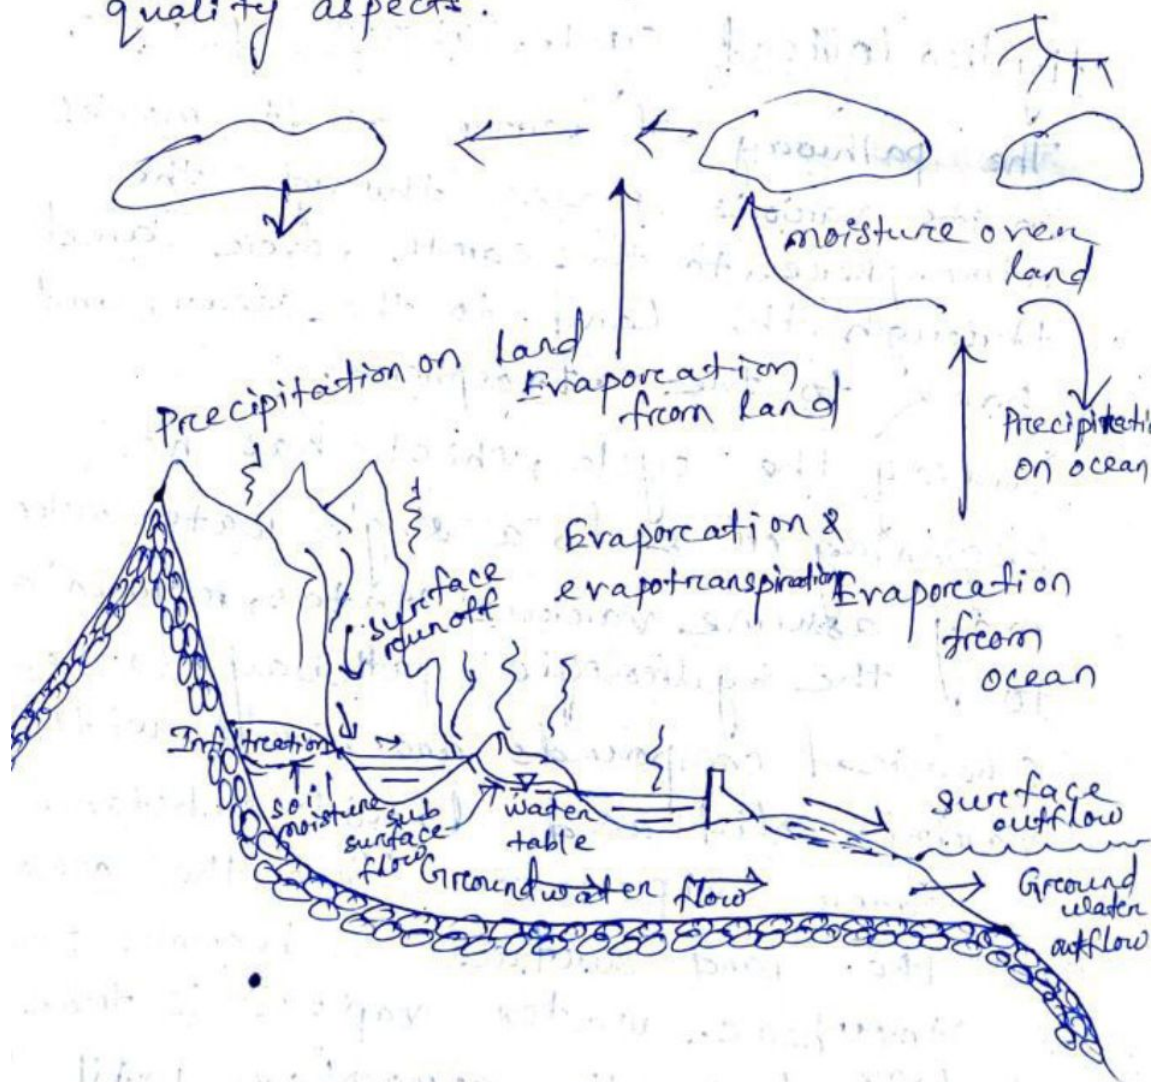 quality aspects.
moisture over
land
Precipitation on Land
Evaporation
from land
Precipitati
on ocean
Evaporation &
evapotranspiration
Evaporation
from
ocean
surface
runoff
Infiltration
soil
moisture
sub
surface
flow
water
table
Ground water flow
surface
outflow
Ground
water
outflow